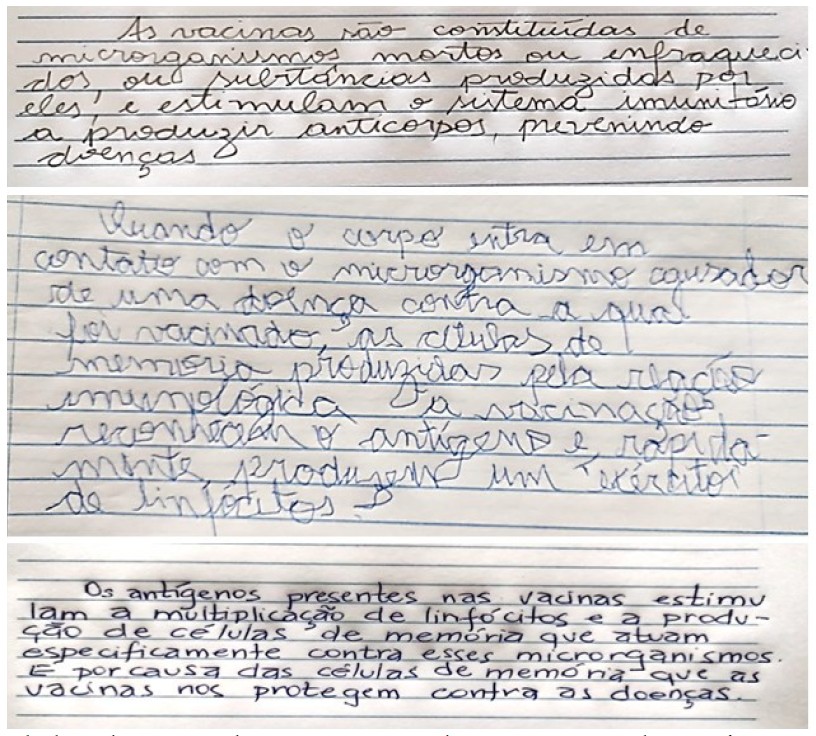 As vacinas são constituídas de
microrganismos mortos ou enfraqueci
dos, ou substâncias produzidas por
eles, e estimulam o sistema imunitário
a produzir anticorpos, prevenindo
doenças
Quando o corpo entra em
contato com o microrganismo causador
de uma doença contra a qual
foi vacinado, as células de
memória produzidas pela reação
imunológica à vacinação
reconhecem o antígeno e, rapida-
mente, produzem um "exército"
de linfócitos.
Os antígenos presentes nas vacinas estimu
lam a multiplicação de linfócitos e a produ-
ção de células de memória que atuam
especificamente contra esses microrganismos.
E por causa das células de memória que as
vacinas nos protegem contra as doenças.